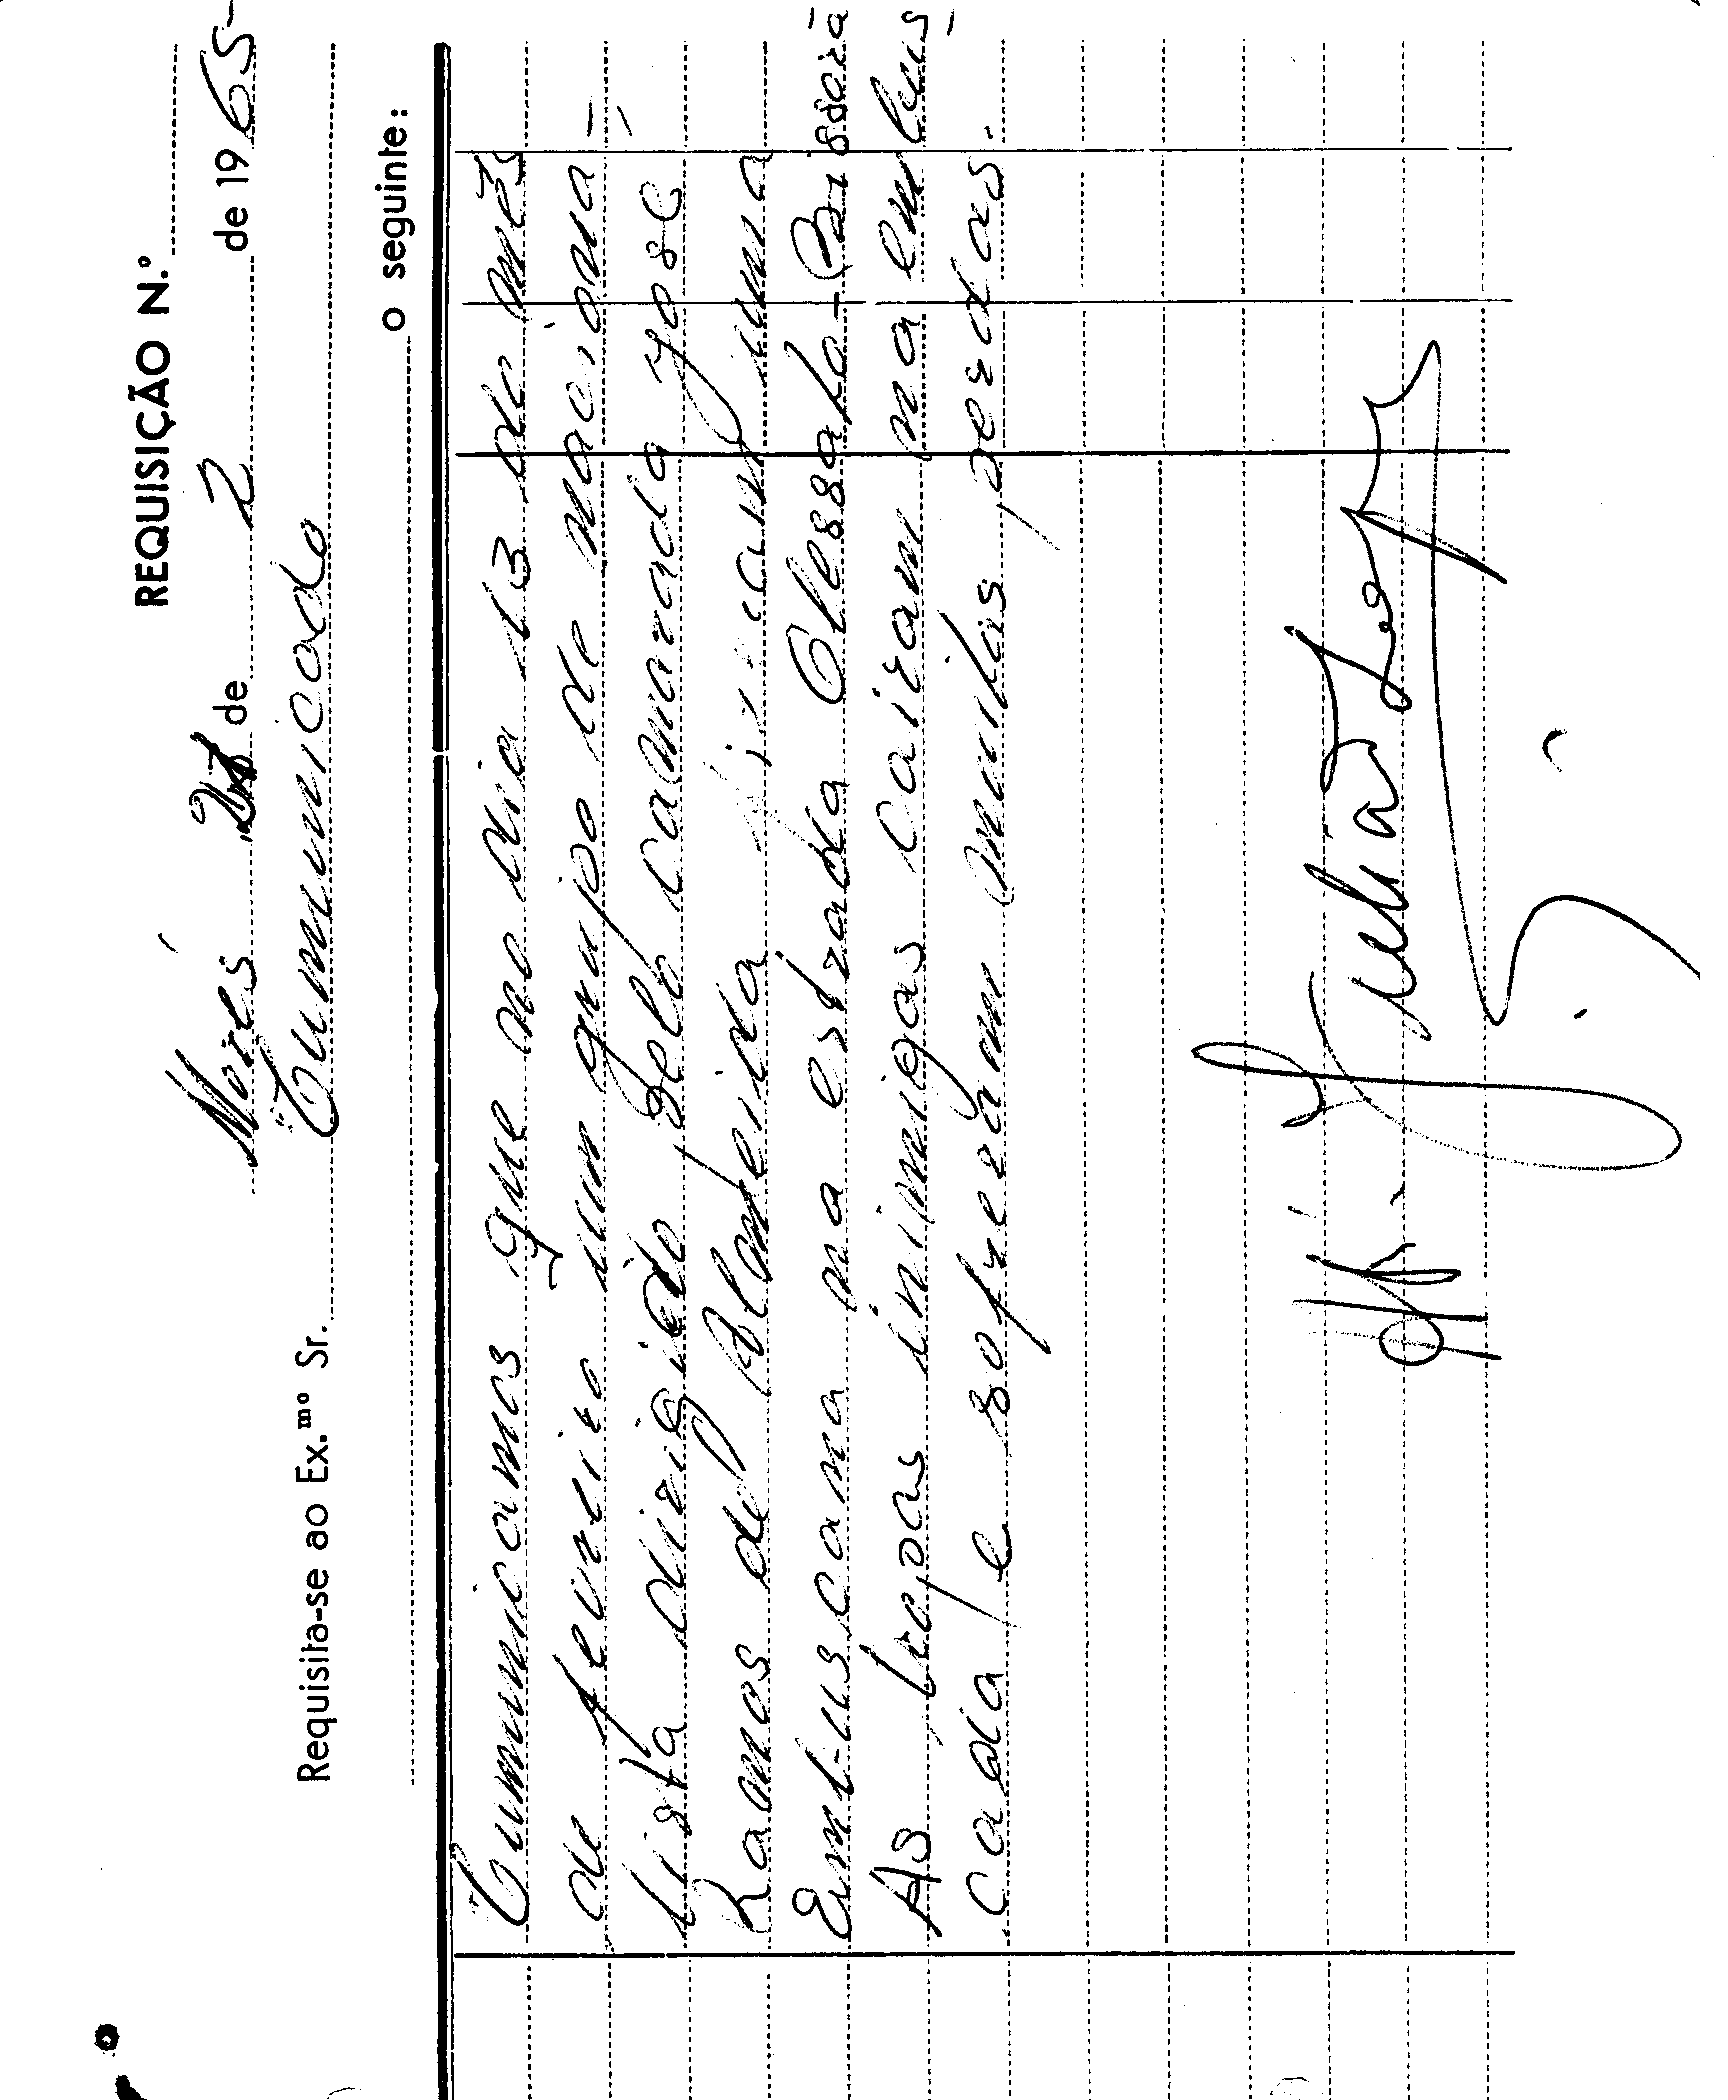 REQUISIÇÃO N.º
Morés, de 2 de 1965-
Cumunicado
Requisita-se ao Ex.mo Sr.
o seguinte:
Cumunicamos que no dia 13 de mês
de fevreiro um grupo de naciona-
lista dirigido pelo camarada José
Ramos de Blanteida fizeram uma
Embuscama na estrada Olossato-Bissorã
As tropas inimigas cairam na embus-
cada e sofreram muitas perdas.